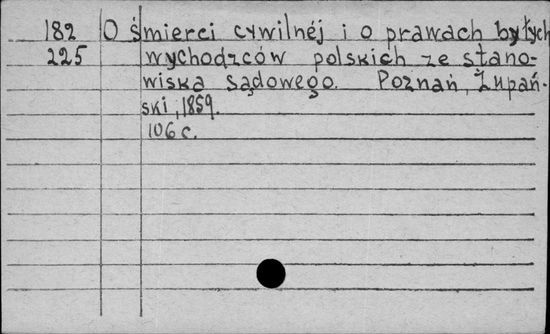 182 O śmierci cywilnéj i o prawach byłych
225 wychodzców polskich ze stano-
wiska sądowego. Poznań, Żupań-
ski, 1859.
106 c.